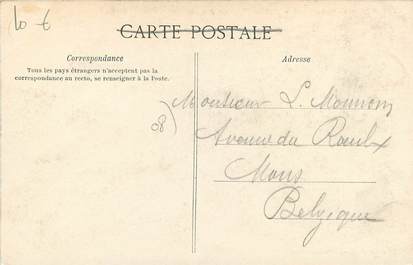 10 €
CARTE POSTALE
Correspondance
Tous les pays étrangers n'acceptent pas la
correspondance au recto, se renseigner à la Poste.
Adresse
08)
Monsieur L.
Avenue du Roeulx
Mons
Belgique